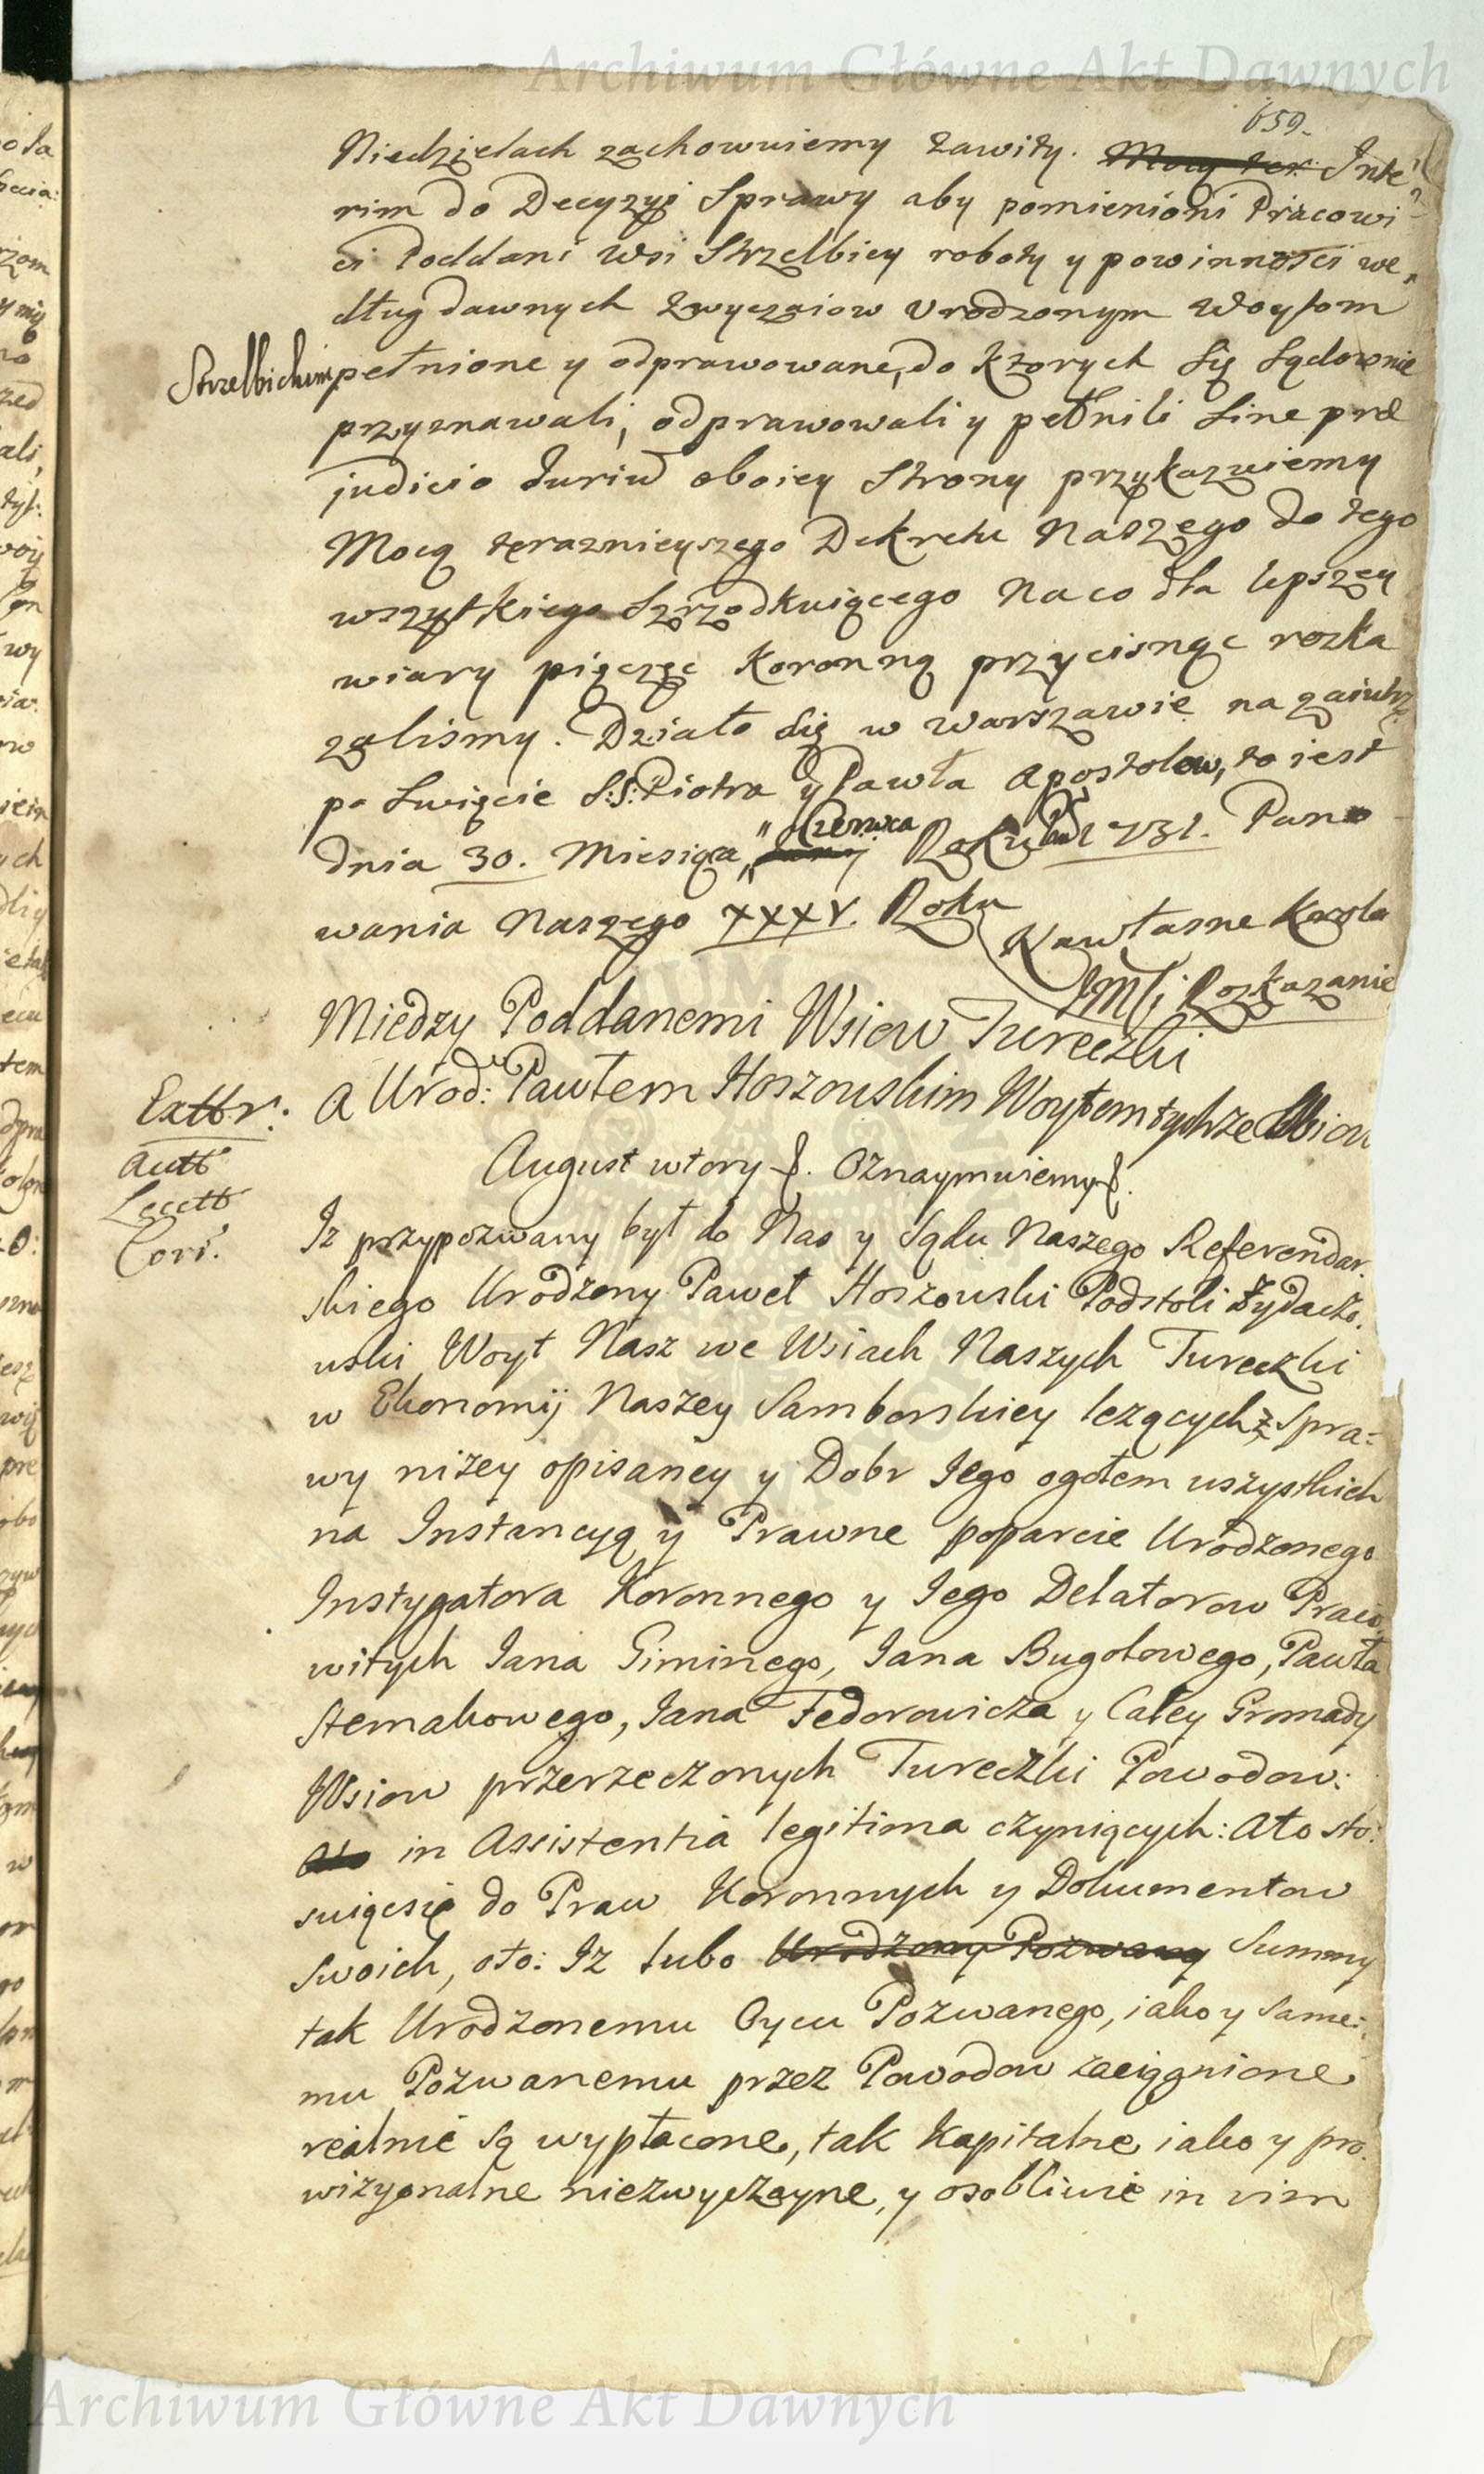 Archiwum Główne Akt Dawnych
659.
Niedzielach zachowuiemy zawity. Mocą ter: Inte-
rim do Decyzyi Sprawy aby pomienioni Pracowi-
ci Poddani Wsi Strzelbicy roboty y powinności we-
dług dawnych zwyczaiow Urodzonym Woytom
Strzelbickim pełnione y odprawowane, do ktorych się sądownie
przyznawali, odprawowali y pełnili sine præ
judicio Juriū oboiey Strony przykazuiemy
Mocą teraznieyszego Dekretu Naszego do tego
wszytkiego szrzodkuiącego Na co dla lepszey
wiary pięczęc Koronną przycisnąc rozka
zalismy. Działo się w Warszawie na zaiutrz
po Swięcie S:S: Piotra y Pawła Apostołow, to iest
dnia 30. Miesiąca Czerwca Roku Pań 1731. Pano
wania Naszego XXXV. Roku
Na własne Krola
JMSci Rozkazanie
Między Poddanemi Wsiow Tureczki
a Urod: Pawłem Hoszowskim Woytem tychże Wsiow
Exttr:
Autt
Lecttt
Cori.
August wtory &. Oznaymuiemy &.
Iz przypozwany był do Nas y Sądu Naszego Referendar.
skiego Urodzony Paweł Hoszowski Podstoli Zydaczo.
wski Woyt Nasz we Wsiach Naszych Tureczki
w Ekonomij Naszey Samborskiey lezących z Spra-
wy nizey opisaney y Dobr Jego ogołem wszystkich
na Instancyą y Prawne poparcie Urodzonego
Instygatora Koronnego y Jego Delatorow Praco
witych Jana Giminego, Jana Bugolowego, Pawła
Stemakowego, Jana Fedorowicza y Całey Gromady
Wsiow przerzeczonych Tureczki Powodow:
Ato in Assistentia legitima czyniących: Ato sto:
suiącsię do Praw Koronnych y Dokumentow
Swoich, oto: Iz lubo Urodzony Pozwany Summy
tak Urodzonemu Oycu Pozwanego, iako y Same:
mu Pozwanemu przez Powodow zaciągnione
realnie są wypłacone, tak Kapitalne iako y pro.
wizyonalne niezwyczayne, y osobliwie in vim
Archiwum Główne Akt Dawnych